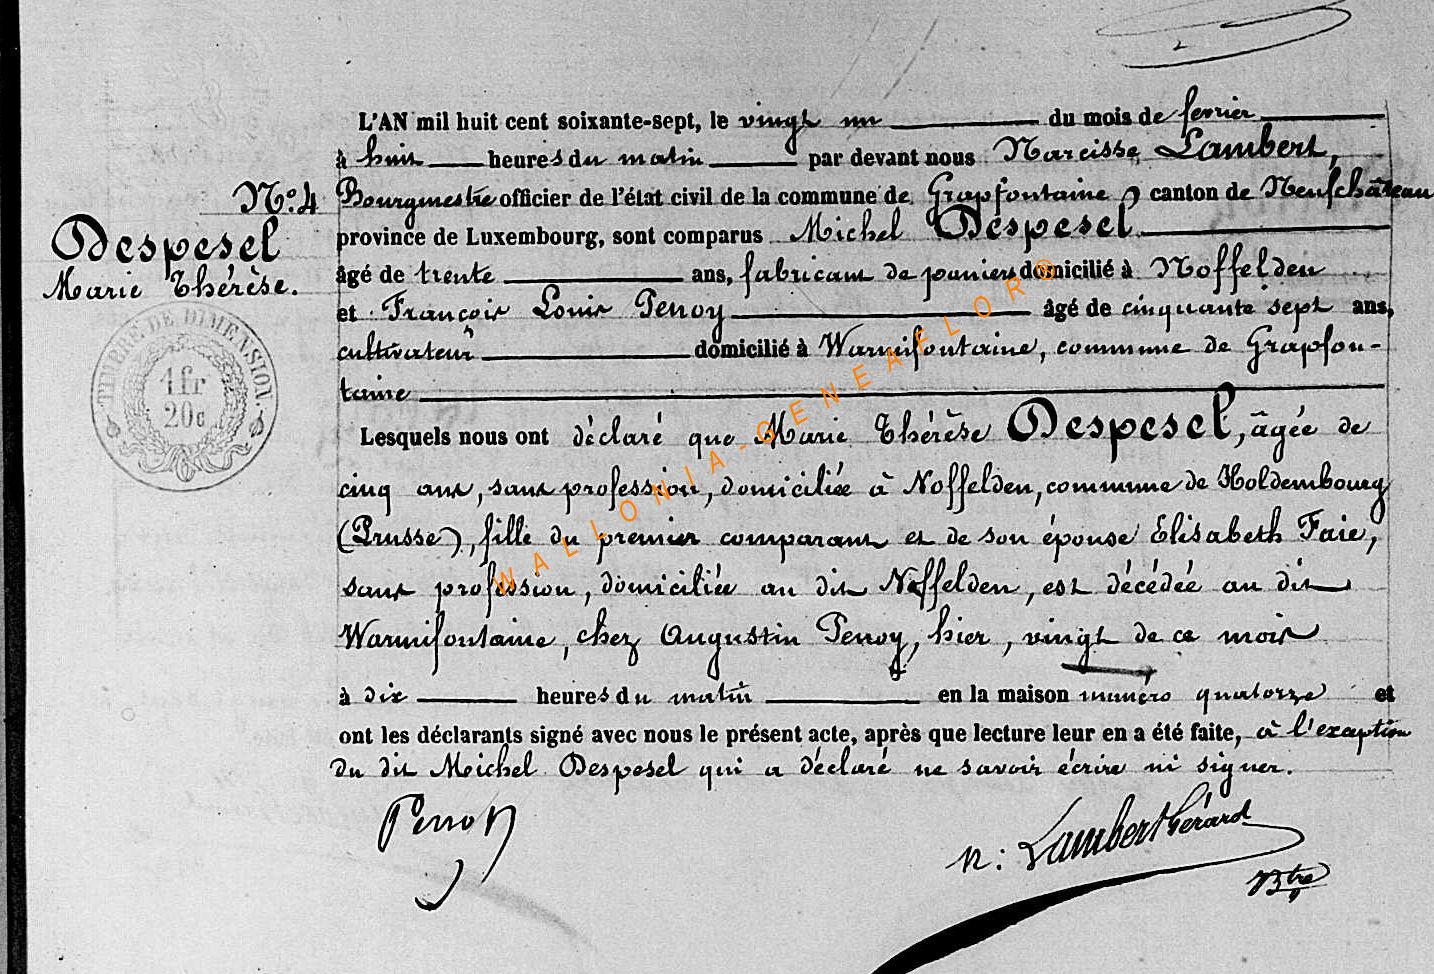 L'AN mil huit cent soixante-sept, le vingt un du mois de fevrier
à huit heures du matin par devant nous Narcisse Lambert,
N° 4 Bourgmestre officier de l'état civil de la commune de Grapfontaine, canton de Neufchâteau
Despesel
Marie Thérèse.
province de Luxembourg, sont comparus Michel Despesel
âgé de trente ans, fabricant de paniers domicilié à Noffelden
et François Louis Penoy âgé de cinquante sept ans,
cultivateur domicilié à Warmifontaine, commune de Grapfon-
taine
TIMBRE DE DIMENSION
1 fr
20 c
Lesquels nous ont déclaré que Marie Thérèse Despesel, âgée de
cinq ans, sans profession, domiciliée à Noffelden, commune de Holdembourg
(Prusse), fille du premier comparant et de son épouse Elisabeth Faie,
sans profession, domiciliée au dit Noffelden, est décédée au dit
Warmifontaine, chez Augustin Penoy, hier, vingt de ce mois
à dix heures du matin en la maison numéro quatorze et
ont les déclarants signé avec nous le présent acte, après que lecture leur en a été faite, à l'exception
du dit Michel Despesel qui a déclaré ne savoir écrire ni signer.
Penoy
N: Lambert Gérard
Btre
WALLONIA-GENEAFLOR®